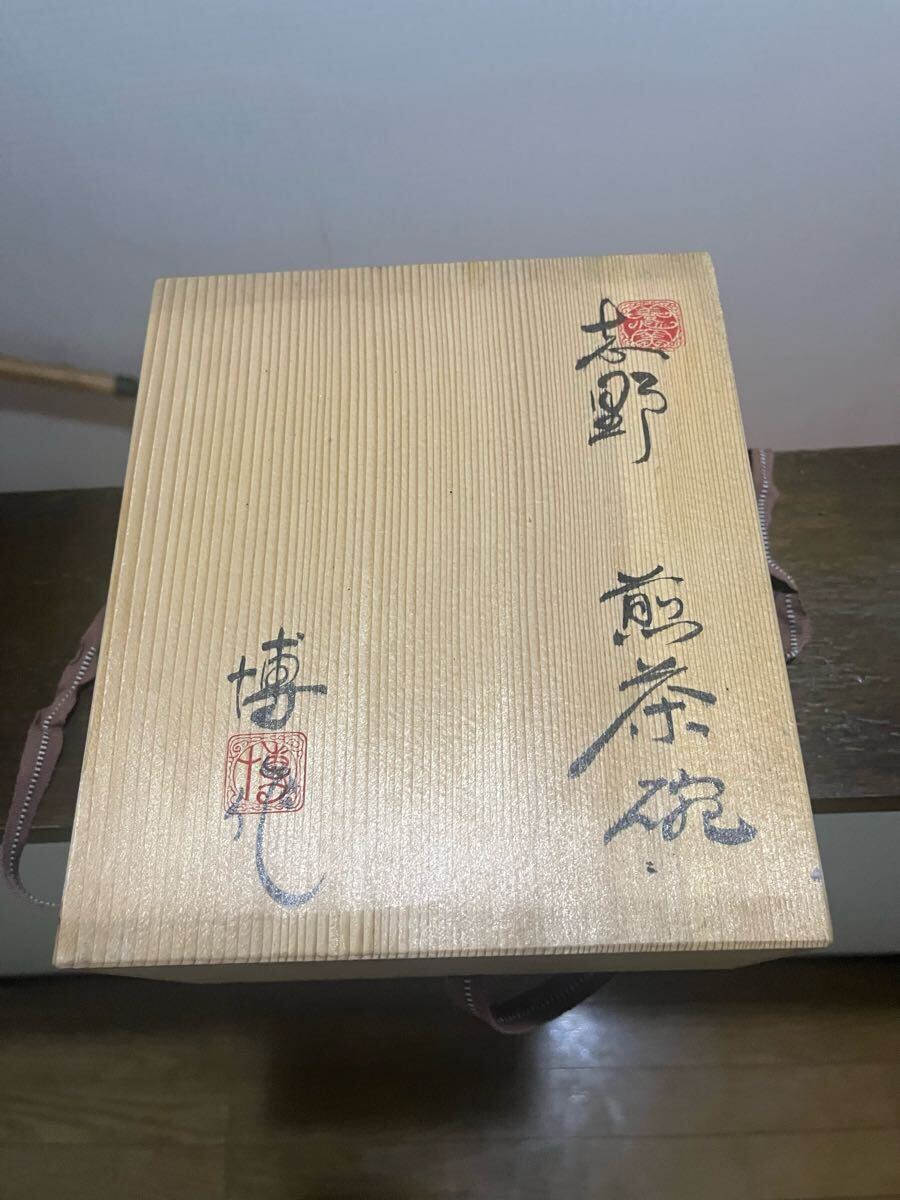 志野 煎茶碗
博
博